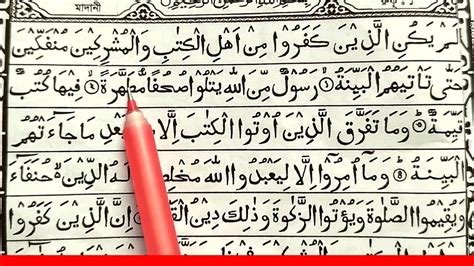 মাদানী
لَمْ يَكُنِ الَّذِيْنَ كَفَرُوْا مِنْ اَهْلِ الْكِتٰبِ وَالْمُشْرِكِيْنَ مُنْفَكِّيْنَ
حَتّٰى تَاْتِيَهُمُ الْبَيِّنَةُ ۙ﴿۱﴾ رَسُوْلٌ مِّنَ اللّٰهِ يَتْلُوْا صُحُفًا مُّطَهَّرَةً ۙ﴿۲﴾ فِيْهَا كُتُبٌ
قَيِّمَةٌ ؕ﴿۳﴾ وَمَا تَفَرَّقَ الَّذِيْنَ اُوْتُوا الْكِتٰبَ اِلَّا بَعْدِ مَا جَآءَتْهُمُ
الْبَيِّنَةُ ؕ﴿۴﴾ وَمَاۤ اُمِرُوْۤا اِلَّا لِيَعْبُدُوا اللّٰهَ الدِّيْنَ حُنَفَآءَ
وَيُقِيْمُوا الصَّلٰوةَ وَيُؤْتُوا الزَّكٰوةَ وَذٰلِكَ دِيْنُ اِنَّ الَّذِيْنَ كَفَرُوْا